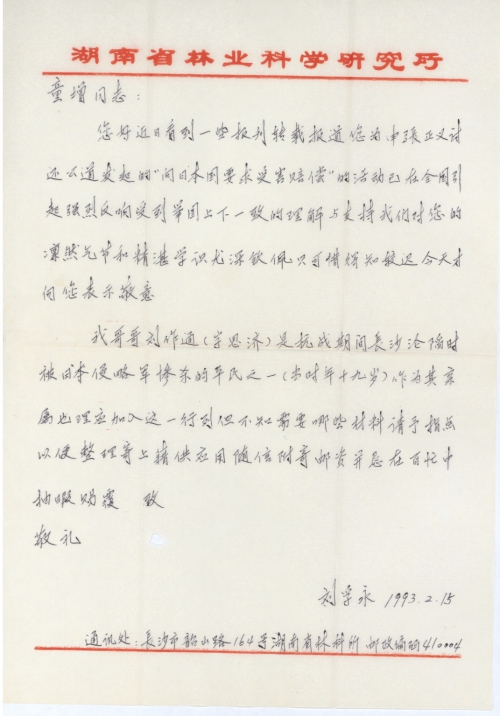 湖南省林业科学研究所
童增同志：
您好近日看到一些报刊转载报道您为申张正义讨
还公道发起的“向日本国要求受害赔偿”的活动已在全国引
起强烈反响受到举国上下一致的理解与支持我们对您的
凛然气节和精湛学识尤深钦佩只可惜得知较迟今天才
向您表示敬意
我哥哥刘作通（字思济）是抗战期间长沙沦陷时
被日本侵略军惨杀的平民之一（当时年十九岁）作为其亲
属也理应加入这一行列但不知需要哪些材料请予指点
以便整理寄上请供应用随信附寄邮资并恳在百忙中
抽暇赐覆 致
敬礼
刘学永 1993.2.15
通讯处：长沙市韶山路164号湖南省林科所 邮政编码410004